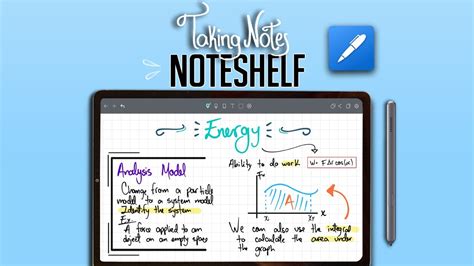 Taking Notes
NOTESHELF
Energy
Analysis Model
Change from a particle
model to a system model
Identify the system
Ex
A force applied to an
object on an empty space
Ability to do work
W = F Δ cos(x)
Fx
A
x
We can also use the integral
to calculate the area under
the graph